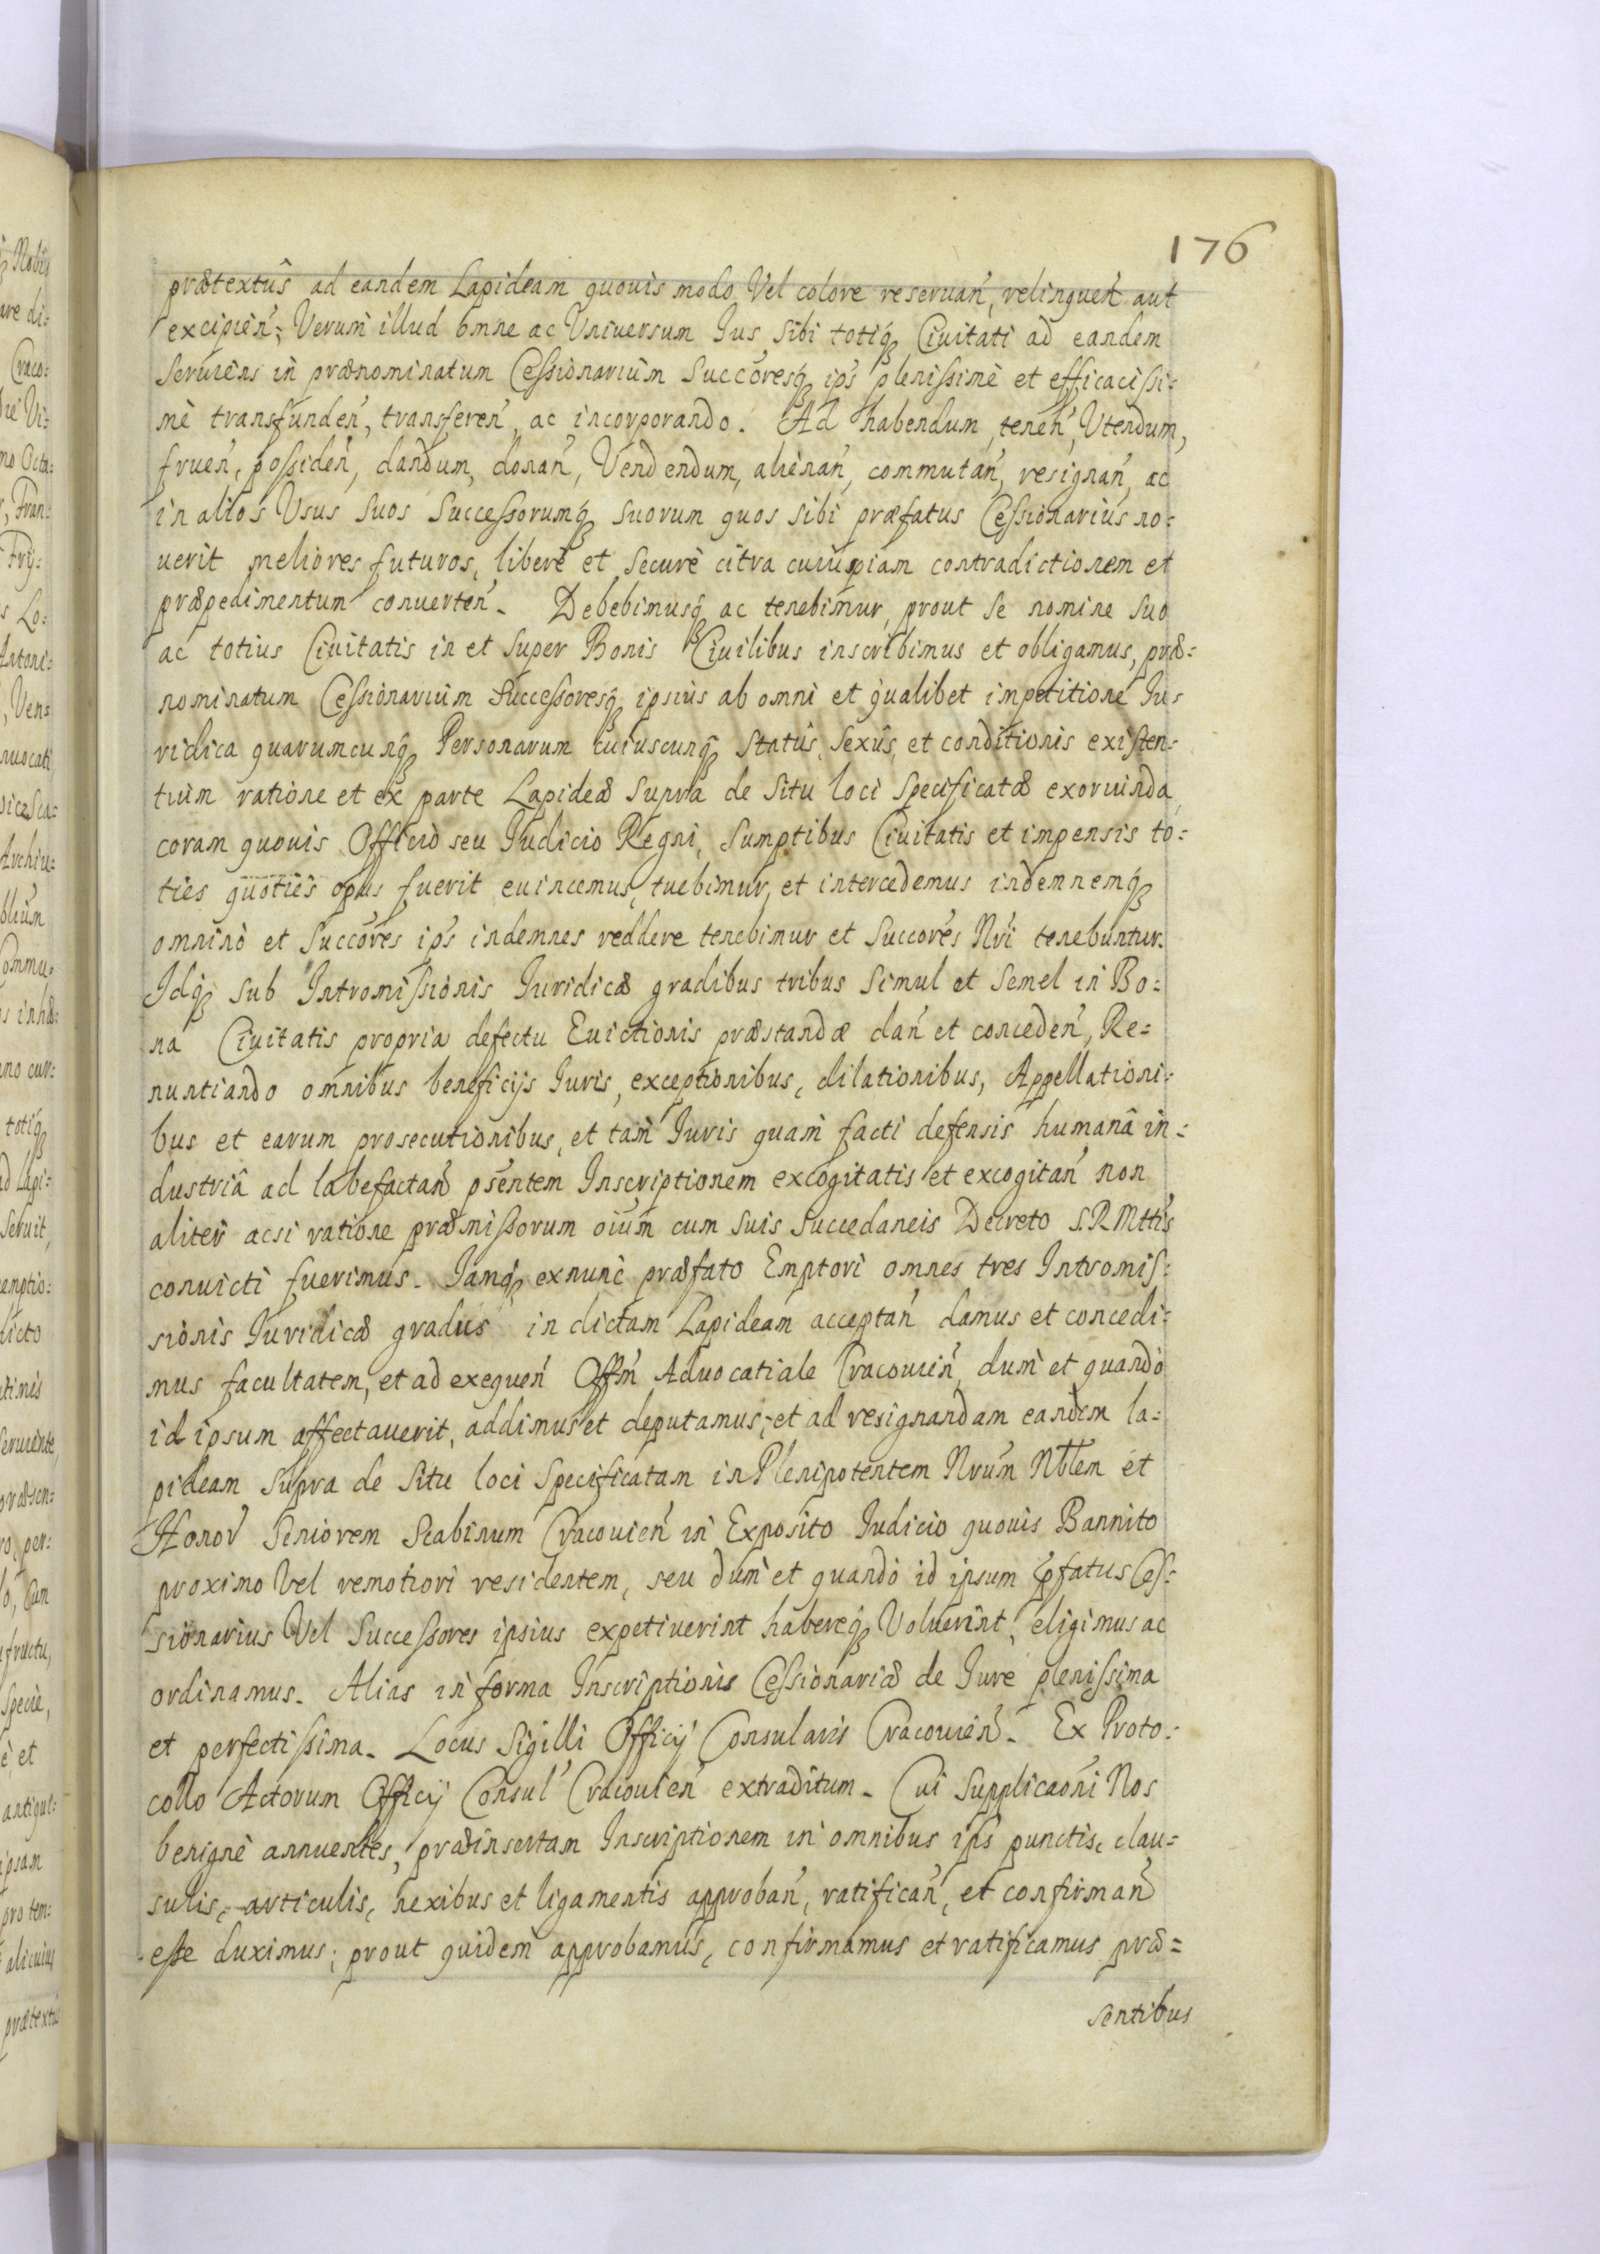 176
prætextûs ad eandem Lapideam quouis modo Vel colore reseruan̄, relinquen̄ aut
excipien̄; Verum illud omne ac Vniuersum Ius, sibi totiq3 Ciuitati ad eandem
seruiens in prænominatum Cessionarium Succōresq3 ip̄s plenissimè et efficacissi=
mè transfunden̄, transferen̄, ac incorporando. Ad habendum, tenen̄, Vtendum,
fruen̄, possiden̄, dandum, donan̄, Vendendum, alienan̄, commutan̄, resignan̄, ac
in alios Vsus suos Successorumq3 suorum quos sibi præfatus Cessionarius no=
uerit meliores futuros, liberè et securè citra cuiuspiam contradictionem et
præpedimentum conuerten̄. Debebimusq3 ac tenebimur, prout se nomine suo
ac totius Ciuitatis in et super Bonis Ciuilibus inscribimus et obligamus, præ=
nominatum Cessionarium Successoresq3 ipsius ab omni et qualibet impetitione Iu=
ridica quarumcunq3 Personarum cuiuscunq3 statûs, sexûs, et conditionis existen=
tium ratione et ex parte Lapideæ supra de situ loci specificatæ exoriunda,
coram quouis Officio seu Iudicio Regni, sumptibus Ciuitatis et impensis to=
ties quoties opus fuerit euincemus, tuebimur, et intercedemus indemnemq3
omninò et Succōres ip̄s indemnes reddere tenebimur et Succōres Nr̄i tenebuntur.
Idq3 sub Intromissionis Iuridicæ gradibus tribus simul et semel in Bo=
na Ciuitatis propria defectu Euictionis præstandæ dan̄ et conceden̄, Re=
nuntiando omnibus beneficijs Iuris, exceptionibus, dilationibus, Appellationi=
bus et earum prosecutionibus, et tam Iuris quam facti defensis humanâ in=
dustriâ ad labefactan̄ pn̄sentem Inscriptionem excogitatis et excogitan̄ non
aliter acsi ratione præmissorum oīum cum suis succedaneis Decreto S.R.Mttis
conuicti fuerimus. Iamq3 exnunc præfato Emptori omnes tres Intromis=
sionis Iuridicæ gradus in dictam Lapideam acceptan̄ damus et concedi=
mus facultatem, et ad exequen̄ Offm̄ Aduocatiale Cracouien̄, dum et quando
id ipsum affectauerit, addimus et deputamus; et ad resignandam eandem la=
pideam supra de situ loci specificatam in Plenipotentem Nr̄um Nb̄lem et
Honor̄ Seniorem Scabinum Cracouien̄ in Exposito Iudicio quouis Bannito
proximo Vel remotiori residentem, seu dum et quando id ipsum p̄fatus Ces=
sionarius Vel Successores ipsius expetiuerint habereq3 Voluerint, eligimus ac
ordinamus. Alias in forma Inscriptionis Cessionariæ de Iure plenissima
et perfectissima. Locus Sigilli Officij Consularis Cracouien̄. Ex Proto=
collo Actorum Officij Consul̄ Cracouien̄ extraditum. Cui supplicaōni Nos
benignè annuentes, præinsertam Inscriptionem in omnibus ip̄s punctis, clau=
sulis, articulis, nexibus et ligamentis approban̄, ratifican̄, et confirman̄
esse duximus; prout quidem approbamus, confirmamus et ratificamus præ=
sentibus